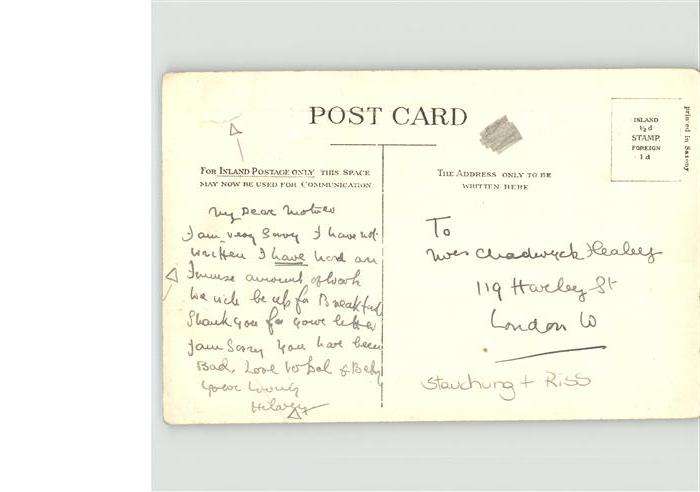 POST CARD
INLAND
½d
STAMP.
FOREIGN
1d
Printed in Saxony
FOR INLAND POSTAGE ONLY THIS SPACE
MAY NOW BE USED FOR COMMUNICATION
THE ADDRESS ONLY TO BE
WRITTEN HERE
My Dear Mother
I am very Sorry I have not
written I have had an
Imense amount of work
We will be up for Breakfast
Thank you for your letter
I am Sorry you have been
Bad, Love to & Baby
your loving
Hilary
To
Mrs Chadwyck Healey
119 Harley St
London W
Stauchung + Riss